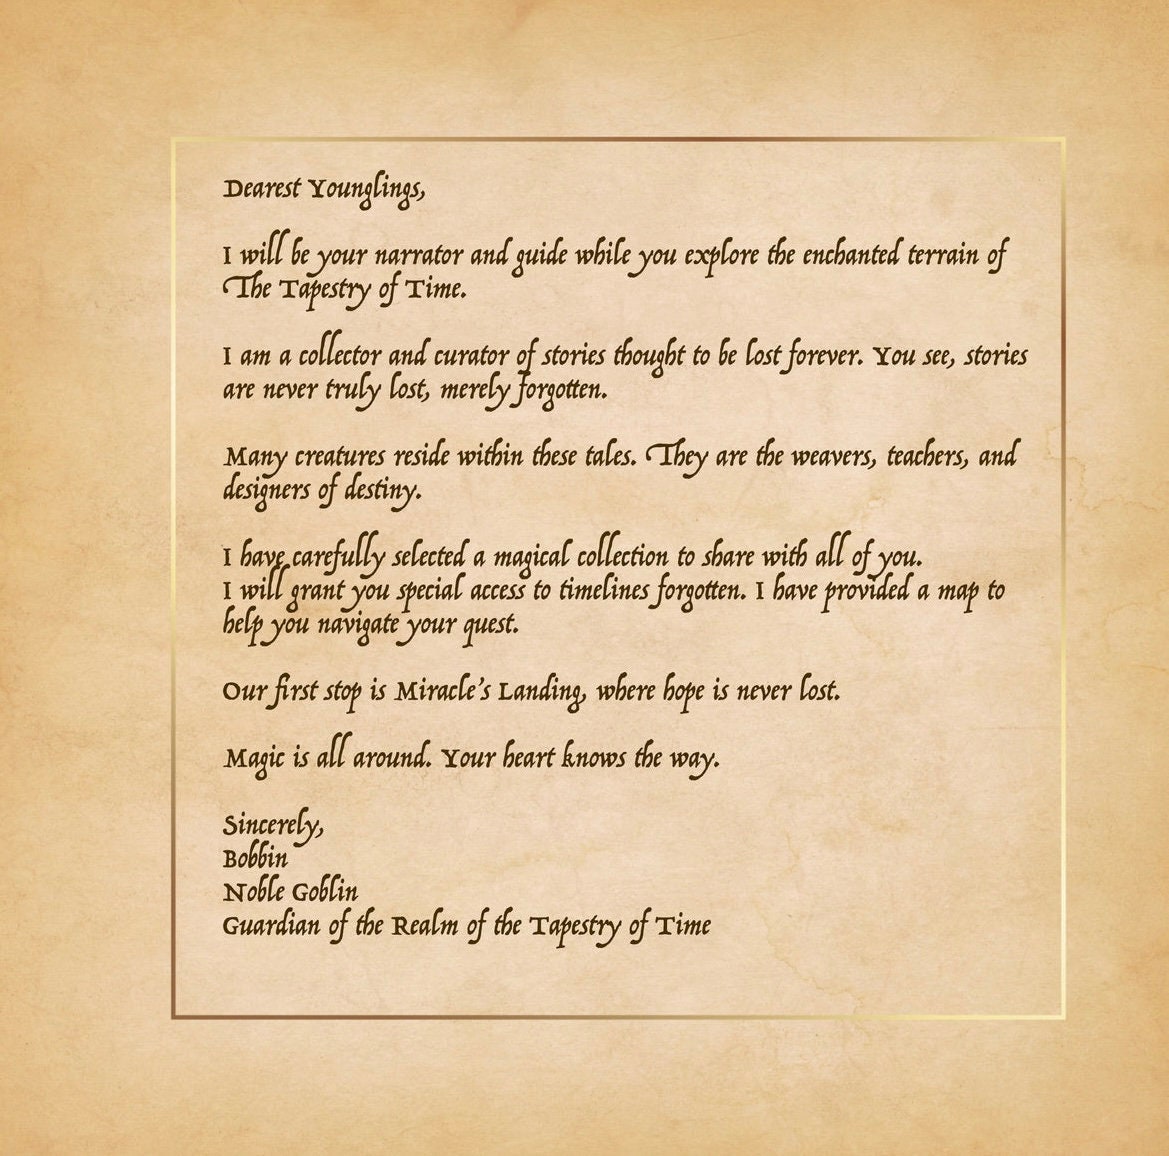 Dearest Younglings,
I will be your narrator and guide while you explore the enchanted terrain of
The Tapestry of Time.
I am a collector and curator of stories thought to be lost forever. You see, stories
are never truly lost, merely forgotten.
Many creatures reside within these tales. They are the weavers, teachers, and
designers of destiny.
I have carefully selected a magical collection to share with all of you.
I will grant you special access to timelines forgotten. I have provided a map to
help you navigate your quest.
Our first stop is Miracle's Landing, where hope is never lost.
Magic is all around. Your heart knows the way.
Sincerely,
Bobbin
Noble Goblin
Guardian of the Realm of the Tapestry of Time